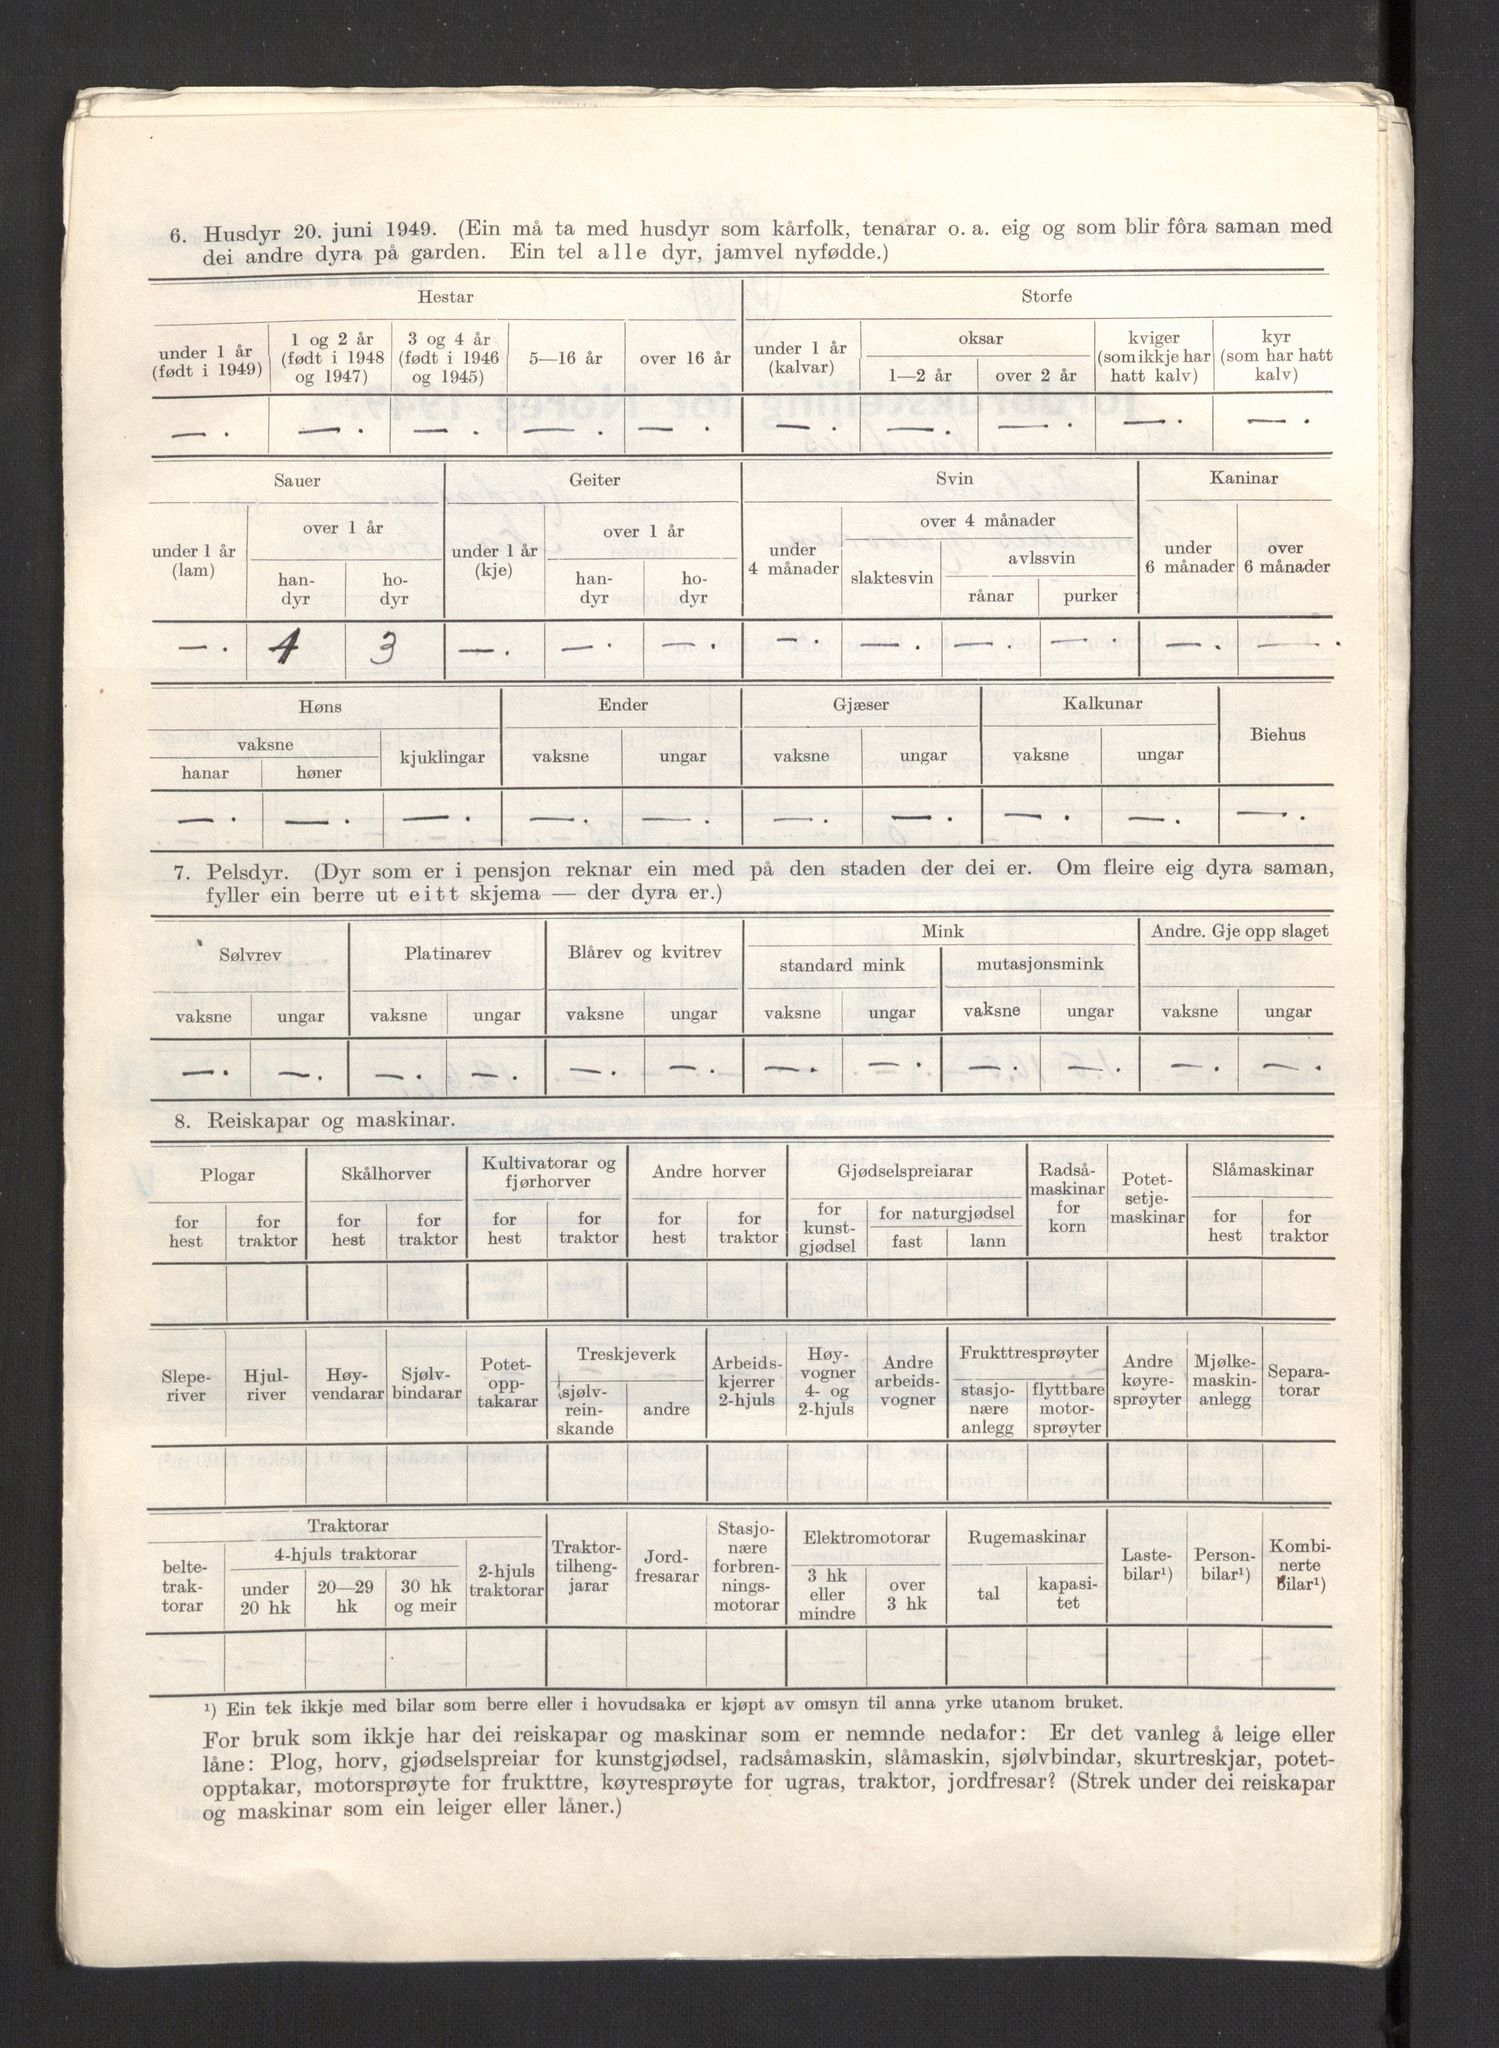 6. Husdyr 20. juni 1949. (Ein må ta med husdyr som kårfolk, tenarar o. a. eig og som blir fôra saman med
dei andre dyra på garden. Ein tel alle dyr, jamvel nyfødde.)
Hestar Storfe
under 1 år (født i 1949) 1 og 2 år (født i 1948 og 1947) 3 og 4 år (født i 1946 og 1945) 5—16 år over 16 år under 1 år (kalvar) oksar 1—2 år over 2 år kviger (som ikkje har hatt kalv) kyr (som har hatt kalv)
—. —. —. —. —. —. —. —. —. —.
Sauer Geiter Svin Kaninar
under 1 år (lam) over 1 år han-dyr ho-dyr under 1 år (kje) over 1 år han-dyr ho-dyr under 4 månader over 4 månader slaktesvin avlssvin rånar purker under 6 månader over 6 månader
—. 4 3 —. —. —. —. —. —. —. —. —.
Høns Ender Gjæser Kalkunar Biehus
vaksne hanar høner kjuklingar vaksne ungar vaksne ungar vaksne ungar
—. —. —. —. —. —. —. —. —. —.
7. Pelsdyr. (Dyr som er i pensjon reknar ein med på den staden der dei er. Om fleire eig dyra saman,
fyller ein berre ut eitt skjema — der dyra er.)
Sølvrev Platinarev Blårev og kvitrev Mink Andre. Gje opp slaget
standard mink mutasjonsmink
vaksne ungar vaksne ungar vaksne ungar vaksne ungar vaksne ungar vaksne ungar
—. —. —. —. —. —. —. —. —. —. —. —.
8. Reiskapar og maskinar.
Plogar Skålhorver Kultivatorar og fjørhorver Andre horver Gjødselspreiarar Radså-maskinar for korn Potet-setje-maskinar Slåmaskinar
for hest for traktor for hest for traktor for hest for traktor for hest for traktor for kunst-gjødsel for naturgjødsel fast lann for hest for traktor
Slepe-river Hjul-river Høy-vendarar Sjølv-bindarar Potet-opp-takarar Treskjeverk sjølv-rein-skande andre Arbeids-kjerrer 2-hjuls Høy-vogner 4- og 2-hjuls Andre arbeids-vogner Frukttresprøyter stasjo-nære anlegg flyttbare motor-sprøyter Andre køyre-sprøyter Mjølke-maskin-anlegg Separa-torar
Traktorar
belte-trak-torar 4-hjuls traktorar under 20 hk 20—29 hk 30 hk og meir 2-hjuls traktorar Traktor-tilheng-jarar Jord-fresarar Stasjo-nære forbren-nings-motorar Elektromotorar 3 hk eller mindre over 3 hk Rugemaskinar tal kapasi-tet Laste-bilar¹) Person-bilar¹) Kombi-nerte bilar¹)
¹) Ein tek ikkje med bilar som berre eller i hovudsaka er kjøpt av omsyn til anna yrke utanom bruket.
For bruk som ikkje har dei reiskapar og maskinar som er nemnde nedafor: Er det vanleg å leige eller
låne: Plog, horv, gjødselspreiar for kunstgjødsel, radsåmaskin, slåmaskin, sjølvbindar, skurtreskjar, potet-
opptakar, motorsprøyte for frukttre, køyresprøyte for ugras, traktor, jordfresar? (Strek under dei reiskapar
og maskinar som ein leiger eller låner.)